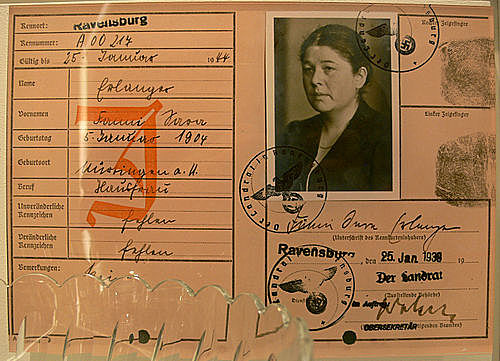 Kennort: Ravensburg
Kennummer: A 00 217
Gültig bis 25. Januar 1944
Name Erlanger
Vornamen Fanni Sara
Geburtstag 5. Januar 1904
Geburtsort
Beruf Hausfrau
Unveränderliche
Kennzeichen fehlen
Veränderliche
Kennzeichen fehlen
Bemerkungen:
J
Rechter Zeigefinger
Linker Zeigefinger
Fanni Sara Erlanger
(Unterschrift des Kennkarteninhabers)
Ravensburg, den 25. Jan. 1939
Der Landrat
(Ausstellende Behörde)
OBERSEKRETÄR